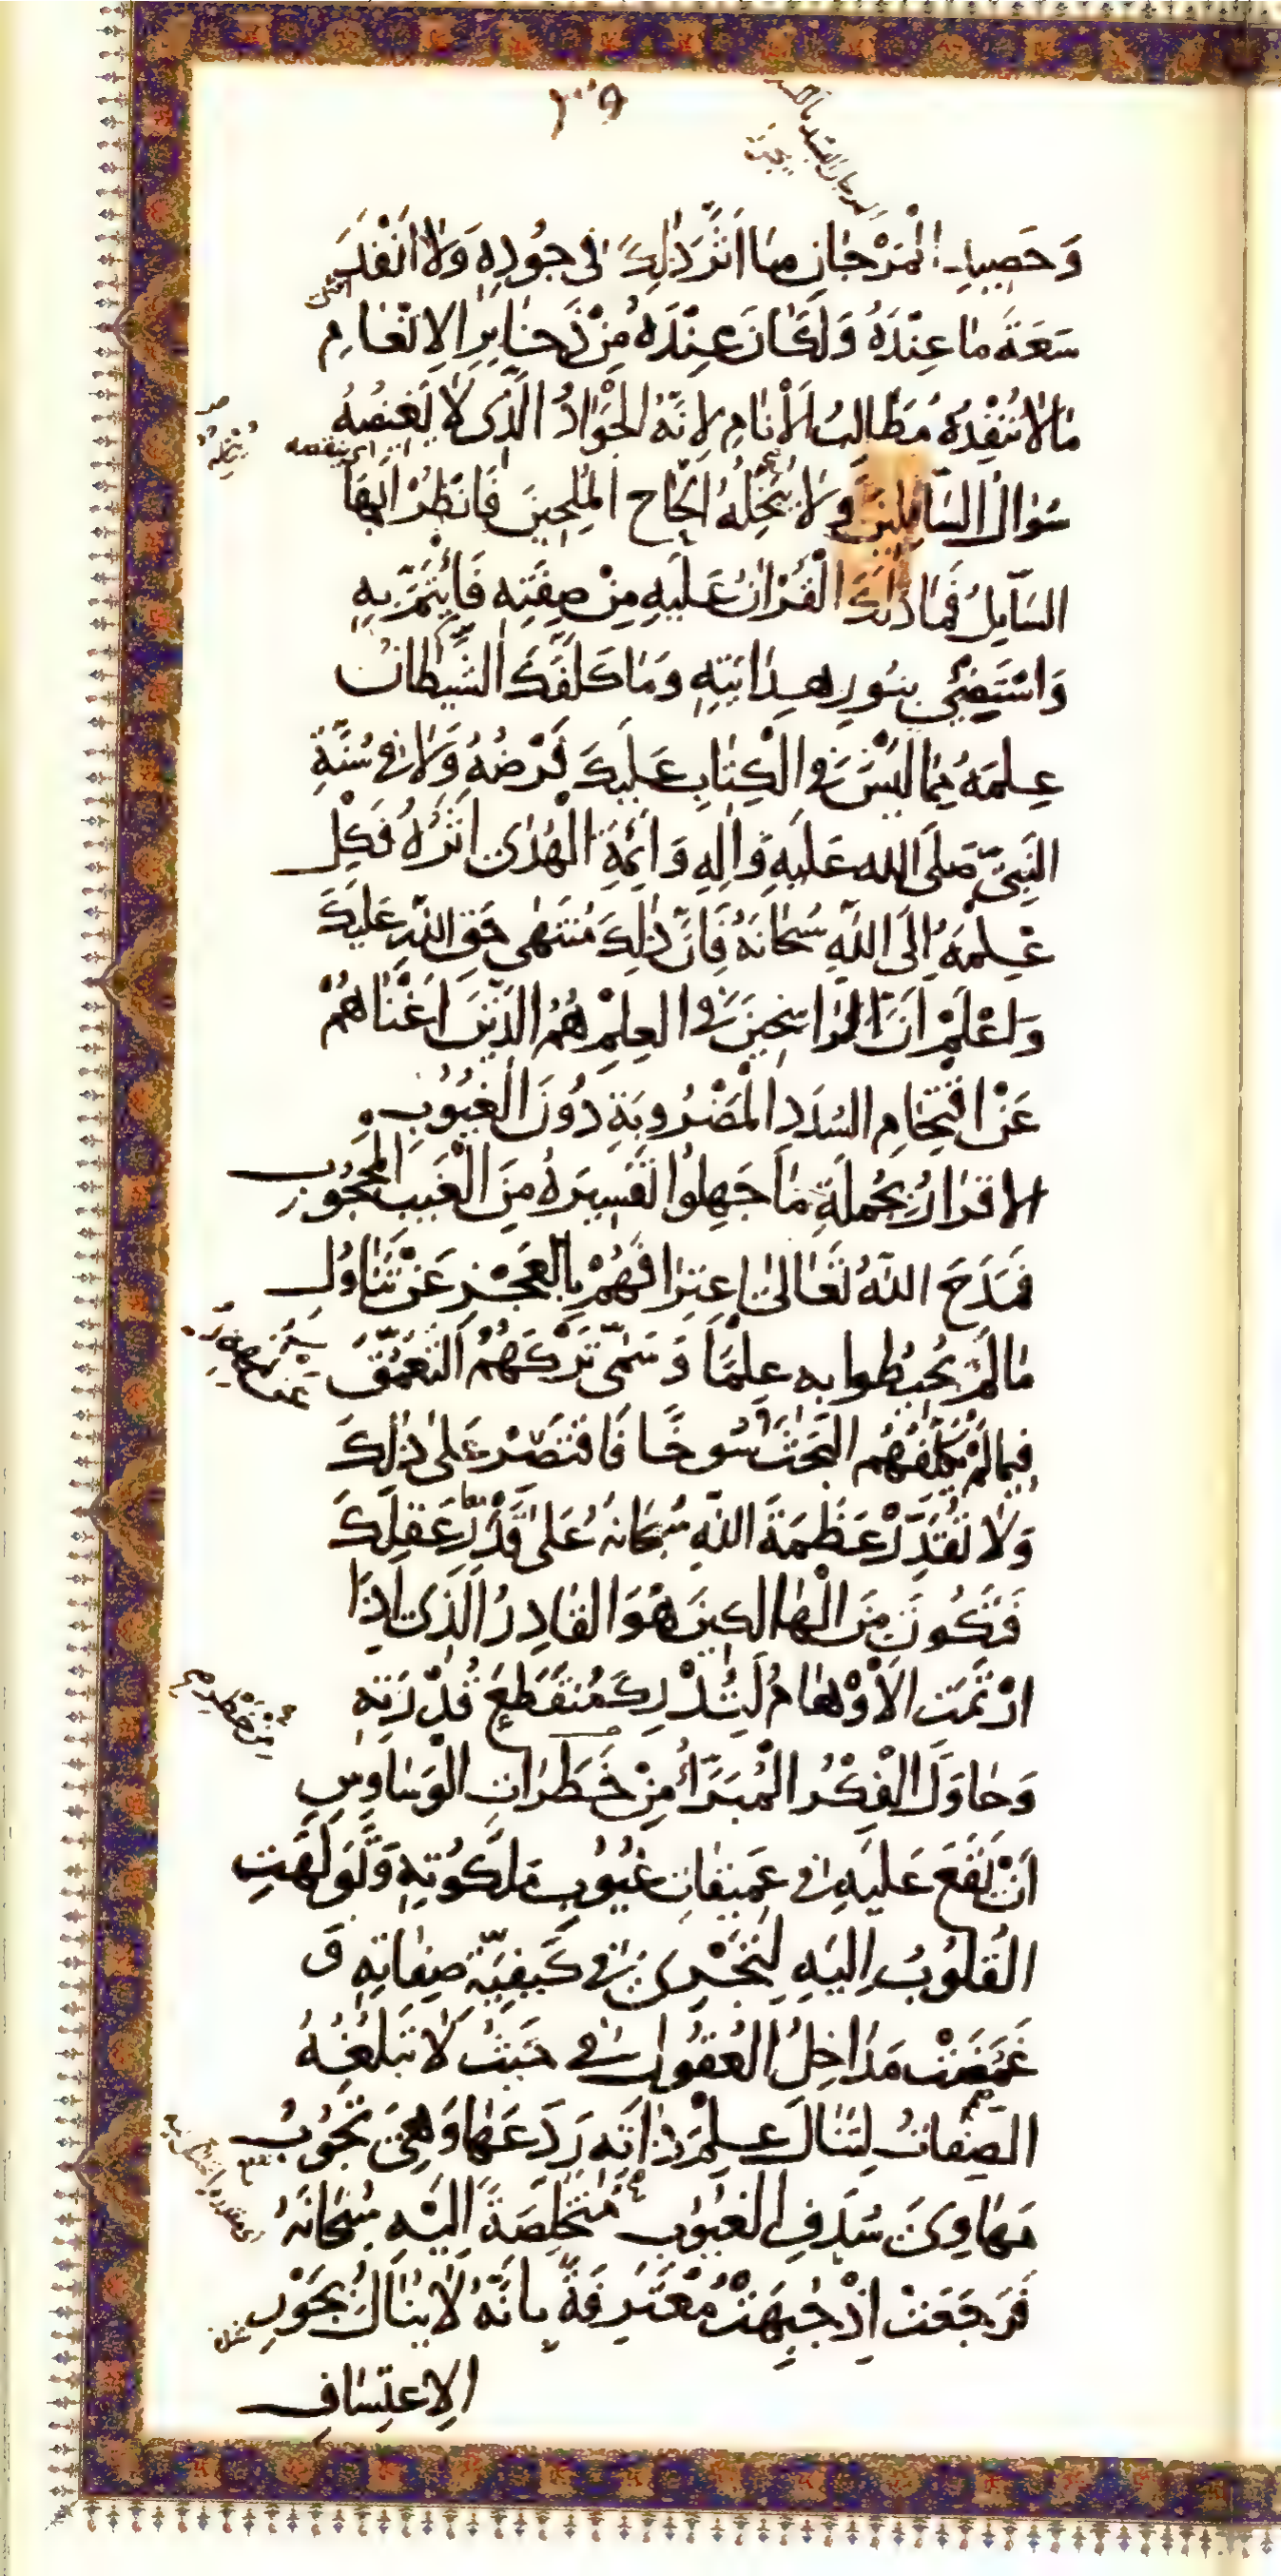 وَحَصِيدِ الْمَرْجَانِ مَا اَثَّرَ ذٰلِكَ فِي جُودِهِ وَلَا اَنْفَدَ
سَعَةَ مَا عِنْدَهُ وَلَكَانَ عِنْدَهُ مِنْ ذَخَايِرِ الْاِنْعَامِ
مَا لَا تُنْفِدُهُ مَطَالِبُ الْاَنَامِ لِاَنَّهُ الْجَوَادُ الَّذِي لَا يَغِيضُهُ
سُؤَالُ السَّايِلِينَ وَلَا يُبْخِلُهُ اِلْحَاحُ الْمُلِحِّينَ فَانْظُرْ اَيُّهَا
السَّايِلُ فَمَا دَلَّكَ الْقُرْاٰنُ عَلَيْهِ مِنْ صِفَتِهِ فَائْتَمَّ بِهِ
وَاسْتَضِئْ بِنُورِ هِدَايَتِهِ وَمَا كَلَّفَكَ الشَّيْطَانُ
عِلْمَهُ مِمَّا لَيْسَ فِي الْكِتَابِ عَلَيْكَ فَرْضُهُ وَلَا فِي سُنَّةِ
النَّبِيِّ صَلَّى اللّٰهُ عَلَيْهِ وَاٰلِهِ وَاَئِمَّةِ الْهُدٰى اَثَرُهُ فَكِلْ
عِلْمَهُ اِلَى اللّٰهِ سُبْحَانَهُ فَاِنَّ ذٰلِكَ مُنْتَهٰى حَقِّ اللّٰهِ عَلَيْكَ
وَاعْلَمْ اَنَّ الرَّاسِخِينَ فِي الْعِلْمِ هُمُ الَّذِينَ اَغْنَاهُمْ
عَنْ اقْتِحَامِ السُّدَدِ الْمَضْرُوبَةِ دُونَ الْغُيُوبِ
الْاِقْرَارُ بِجُمْلَةِ مَا جَهِلُوا تَفْسِيرَهُ مِنَ الْغَيْبِ الْمَحْجُوبِ
فَمَدَحَ اللّٰهُ تَعَالٰى اعْتِرَافَهُمْ بِالْعَجْزِ عَنْ تَنَاوُلِ
مَا لَمْ يُحِيطُوا بِهِ عِلْمًا وَسَمّٰى تَرْكَهُمُ التَّعَمُّقَ
فِيمَا لَمْ يُكَلِّفْهُمُ الْبَحْثَ رُسُوخًا فَاقْتَصِرْ عَلٰى ذٰلِكَ
وَلَا تُقَدِّرْ عَظَمَةَ اللّٰهِ سُبْحَانَهُ عَلٰى قَدْرِ عَقْلِكَ
فَتَكُونَ مِنَ الْهَالِكِينَ هُوَ الْقَادِرُ الَّذِي اِذَا
ارْتَمَتِ الْاَوْهَامُ لِتُدْرِكَ مُنْقَطَعَ قُدْرَتِهِ
وَحَاوَلَ الْفِكْرُ الْمُبَرَّأُ مِنْ خَطَرَاتِ الْوَسَاوِسِ
اَنْ يَقَعَ عَلَيْهِ فِي عَمِيقَاتِ غُيُوبِ مَلَكُوتِهِ وَتَوَلَّهَتِ
الْقُلُوبُ اِلَيْهِ لِتَجْرِيَ فِي كَيْفِيَّةِ صِفَاتِهِ وَ
غَمَضَتْ مَدَاخِلُ الْعُقُولِ فِي حَيْثُ لَا تَبْلُغُهُ
الصِّفَاتُ لِتَنَالَ عِلْمَ ذَاتِهِ رَدَعَهَا وَهِيَ تَجُوبُ
مَهَاوِيَ سُدَفِ الْغُيُوبِ مُتَخَلِّصَةً اِلَيْهِ سُبْحَانَهُ
فَرَجَعَتْ اِذْ جُبِهَتْ مُعْتَرِفَةً بِاَنَّهُ لَا يُنَالُ بِجَوْرِ
الْاِعْتِسَافِ